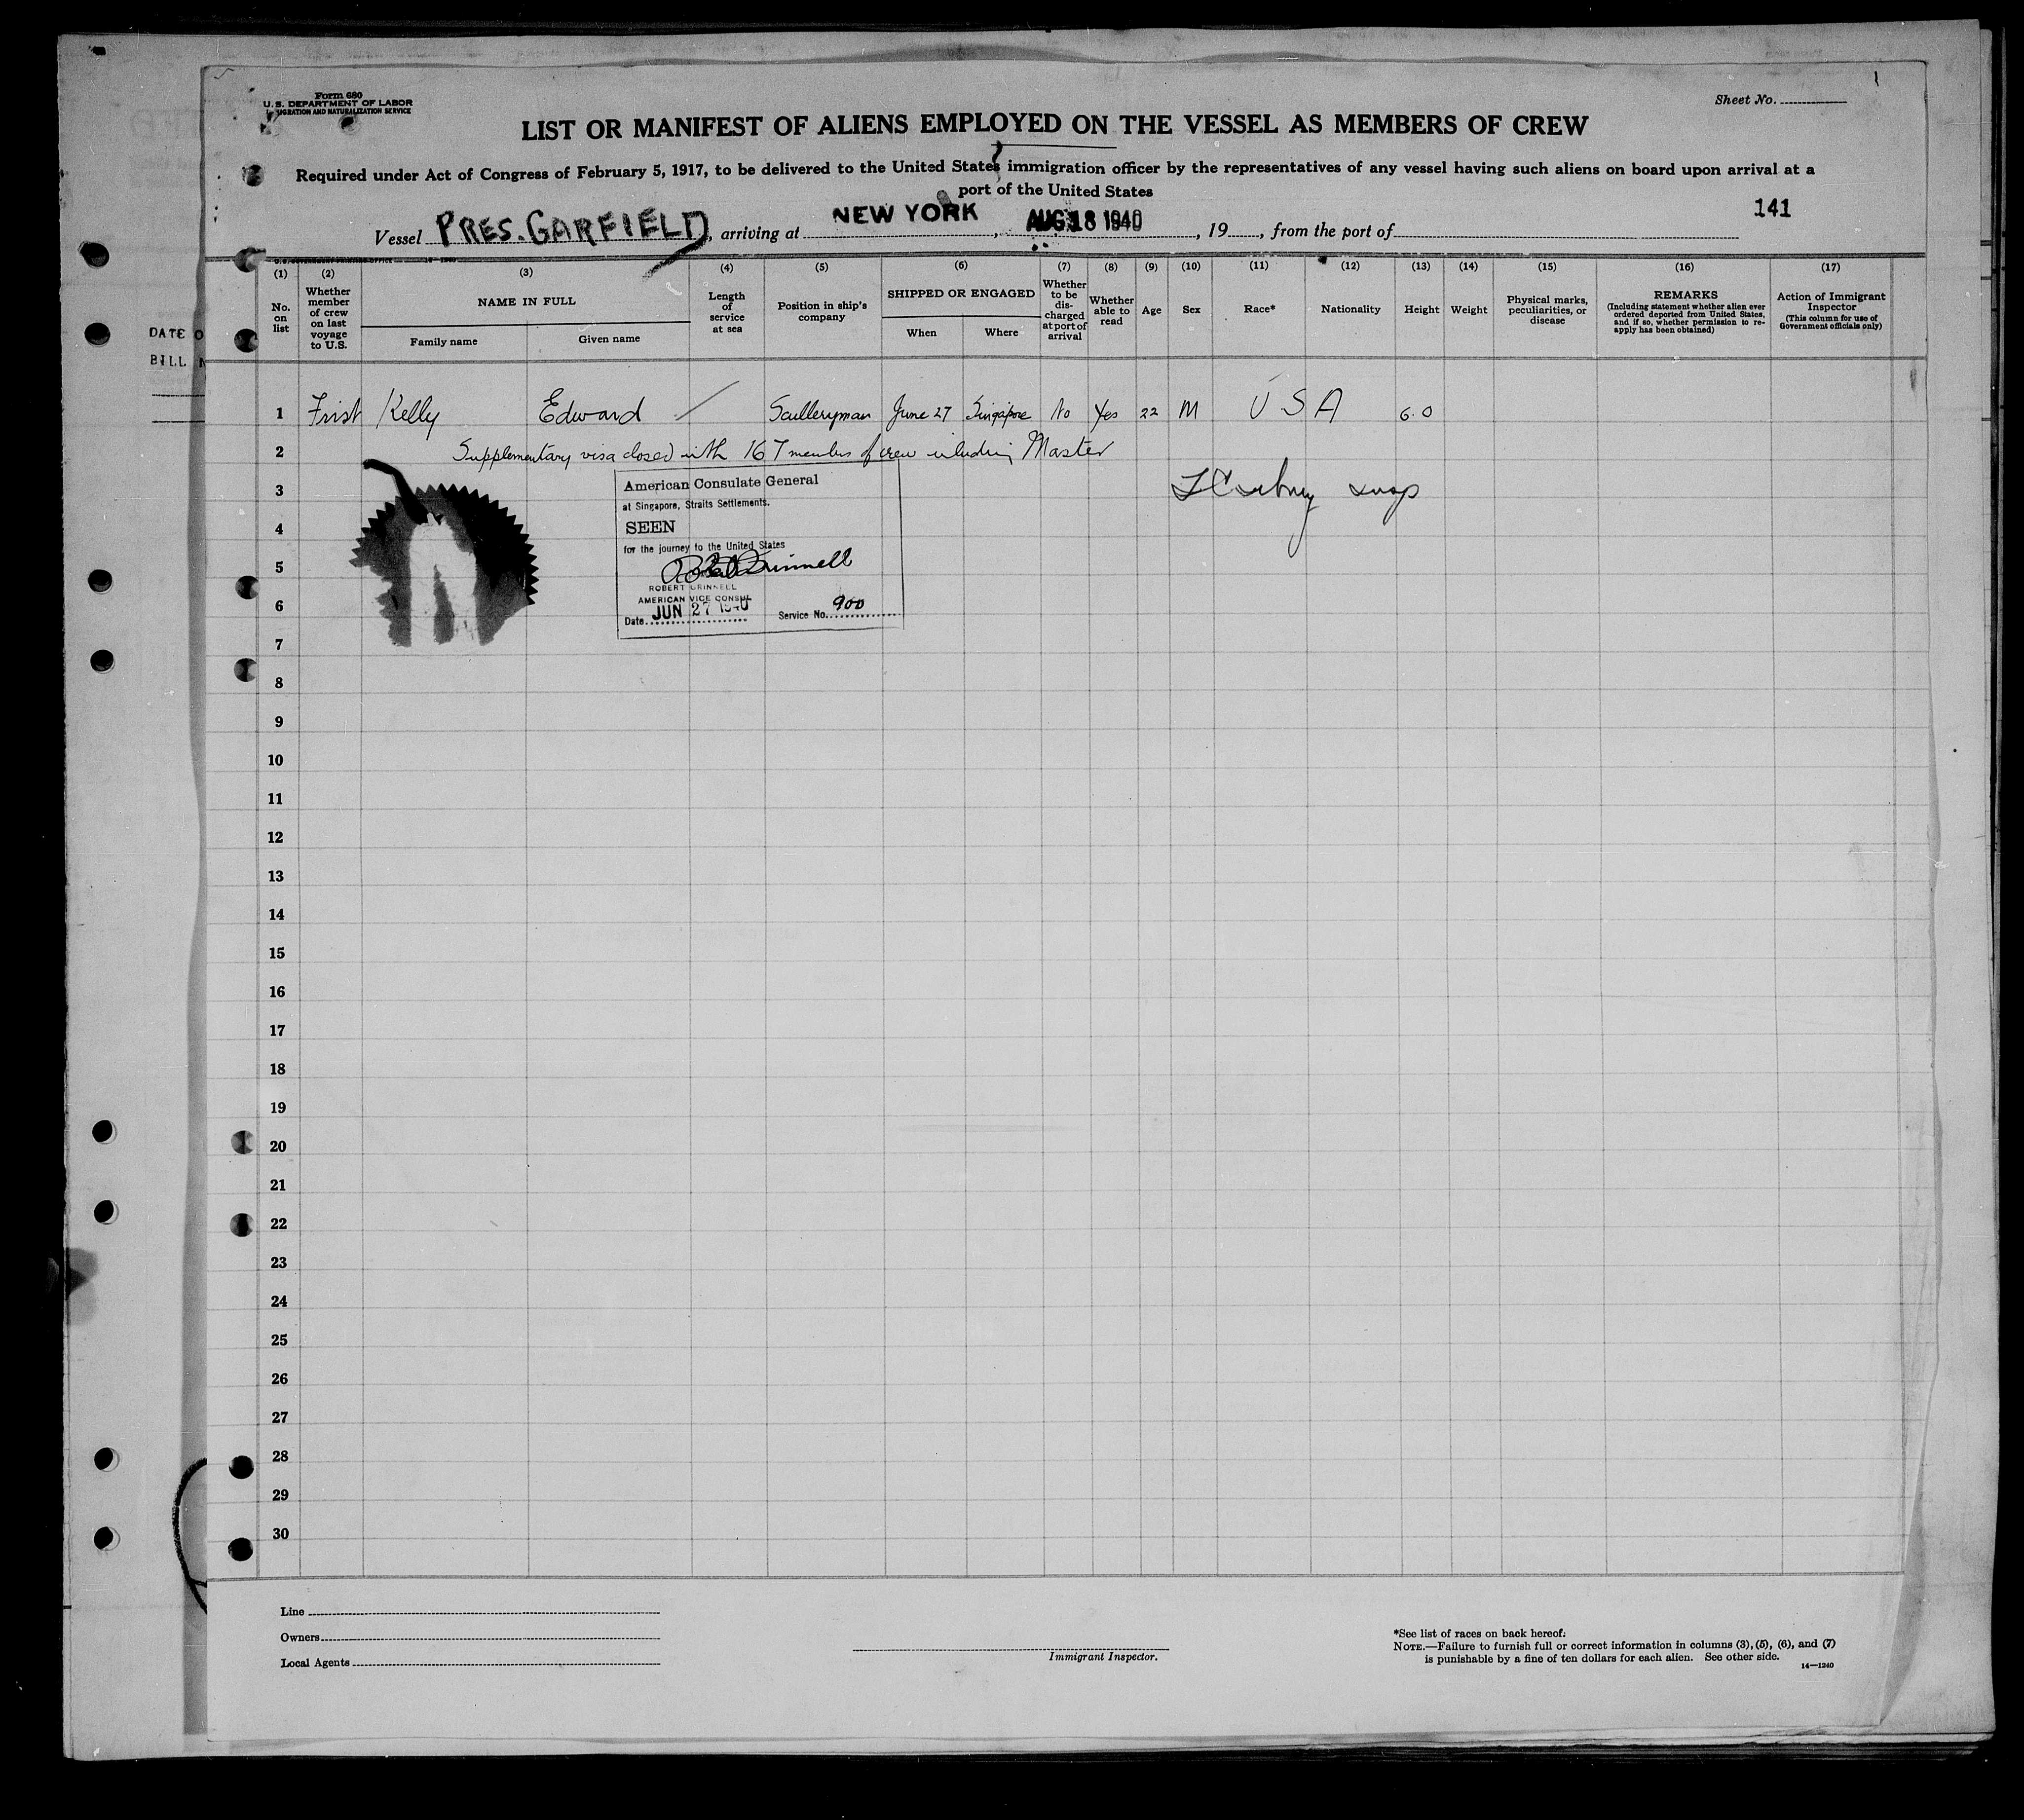 Form 680
U. S. DEPARTMENT OF LABOR
IGRATION AND NATURALIZATION SERVICE
Sheet No.
LIST OR MANIFEST OF ALIENS EMPLOYED ON THE VESSEL AS MEMBERS OF CREW
Required under Act of Congress of February 5, 1917, to be delivered to the United States immigration officer by the representatives of any vessel having such aliens on board upon arrival at a
port of the United States
141
Vessel PRES. GARFIELD, arriving at NEW YORK, AUG 18 1940, 19, from the port of
DATE O
BILL
(1) No. on list
(2) Whether member of crew on last voyage to U.S.
(3) NAME IN FULL
Family name
Given name
(4) Length of service at sea
(5) Position in ship's company
(6) SHIPPED OR ENGAGED
When
Where
(7) Whether to be dis-charged at port of arrival
(8) Whether able to read
(9) Age
(10) Sex
(11) Race*
(12) Nationality
(13) Height
(14) Weight
(15) Physical marks, peculiarities, or disease
(16) REMARKS (Including statement whether alien ever ordered deported from United States, and if so, whether permission to re-apply has been obtained)
(17) Action of Immigrant Inspector (This column for use of Government officials only)
1 Frist Kelly Edward / Sculleryman June 27 Singapore No Yes 22 M U S A 6.0
2 Supplementary visa closed with 167 members of crew including Master
3
American Consulate General
at Singapore, Straits Settlements.
4
SEEN
for the journey to the United States
5
Robert Grinnell
ROBERT GRINNELL
6
AMERICAN VICE CONSUL
Date JUN 27 1940 Service No. 900
7
8
9
10
11
12
13
14
15
16
17
18
19
20
21
22
23
24
25
26
27
28
29
30
Line
Owners
Local Agents
Immigrant Inspector.
*See list of races on back hereof.
NOTE.—Failure to furnish full or correct information in columns (3), (5), (6), and (7)
is punishable by a fine of ten dollars for each alien. See other side.
14—1240